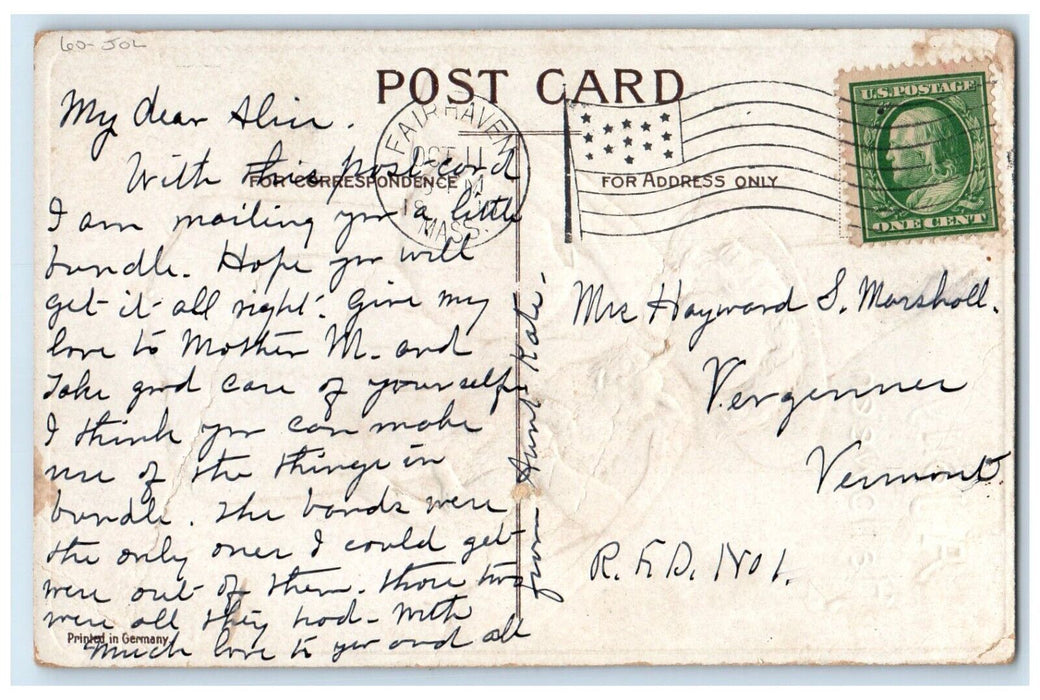 60-JOL
POST CARD
U.S. POSTAGE
ONE CENT
FAIRHAVEN
OCT 11
MASS.
FOR CORRESPONDENCE
FOR ADDRESS ONLY
My dear Alice.
With this post-card
I am mailing you a little
bundle. Hope you will
get it all right. Give my
love to Mother M. and
Take good care of yourself.
I think you can make
use of the things in
bundle. The bands were
the only ones I could get
were out of them. those two
were all they had. With
much love to you and all
from Aunt Kate.
Mrs Hayward S. Marshall.
Vergennes
Vermont.
R.F.D. No 1.
Printed in Germany.